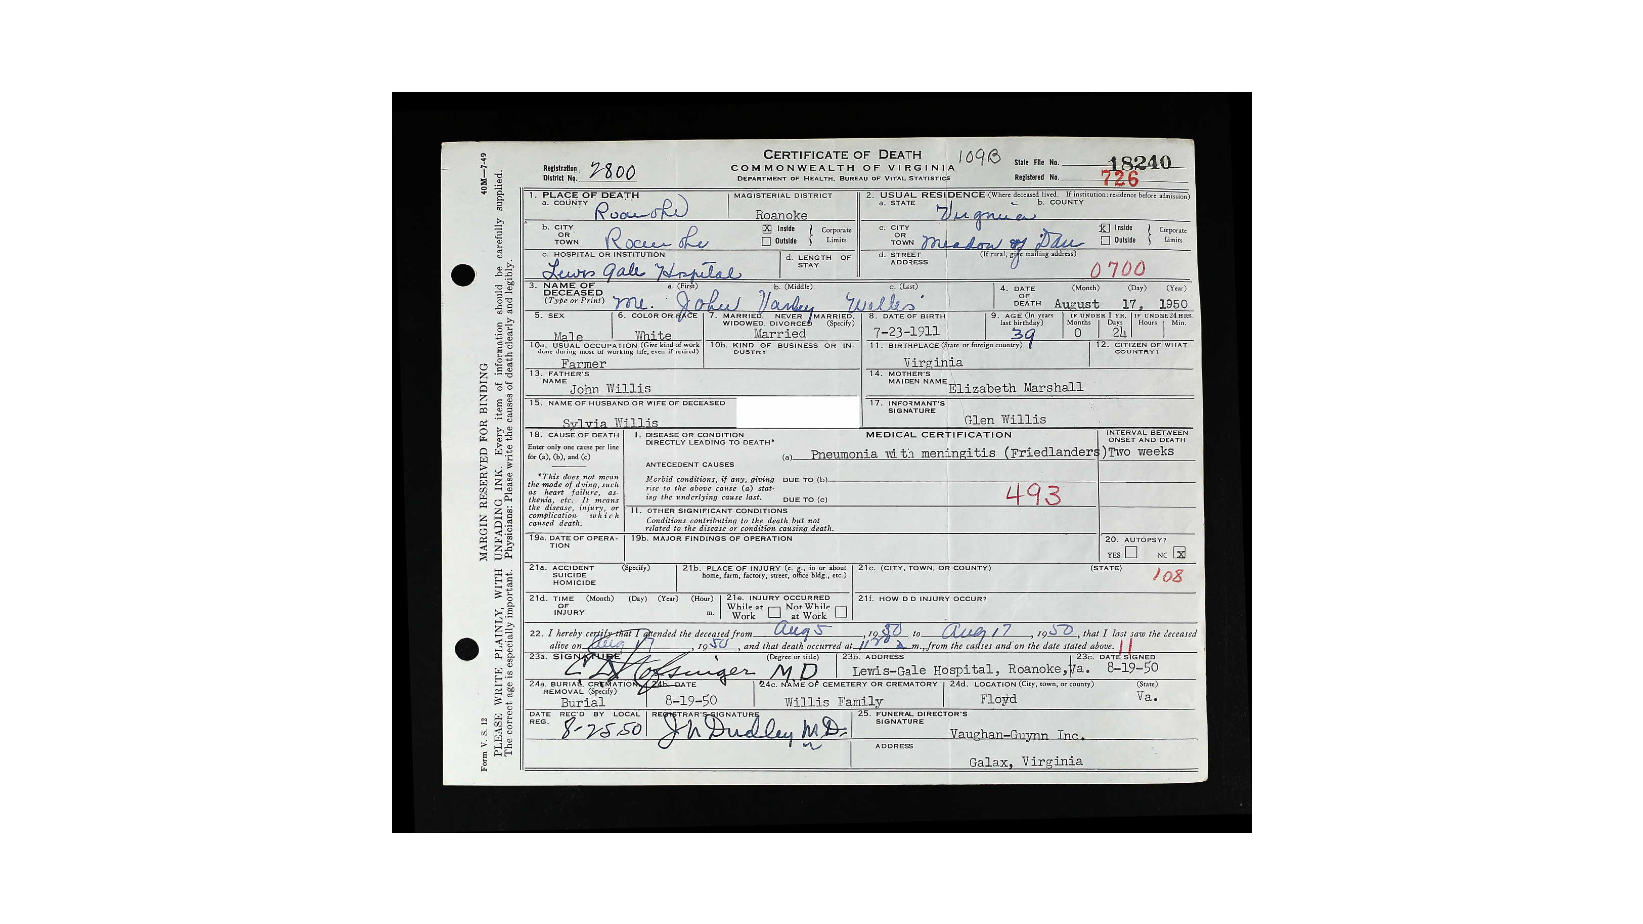 CERTIFICATE OF DEATH 109B
COMMONWEALTH OF VIRGINIA
DEPARTMENT OF HEALTH, BUREAU OF VITAL STATISTICS
Registration District No. 2800
State File No. 18240
Registered No. 726
40M—7-49
MARGIN RESERVED FOR BINDING
PLEASE WRITE PLAINLY, WITH UNFADING INK. Every item of information should be carefully supplied.
The correct age is especially important. Physicians: Please write the causes of death clearly and legibly.
Form V. S. 12
1. PLACE OF DEATH
a. COUNTY Roanoke
MAGISTERIAL DISTRICT Roanoke
2. USUAL RESIDENCE (Where deceased lived. If institution: residence before admission)
a. STATE Virginia b. COUNTY
b. CITY OR TOWN Roanoke
X Inside Outside } Corporate Limits
c. CITY OR TOWN Meadow of Dan
X Inside Outside } Corporate Limits
c. HOSPITAL OR INSTITUTION Lewis Gale Hospital
d. LENGTH OF STAY
d. STREET ADDRESS (If rural, give mailing address) 0700
3. NAME OF DECEASED (Type or Print) a. (First) b. (Middle) c. (Last)
Mr. John Willis
4. DATE OF DEATH (Month) (Day) (Year)
August 17, 1950
5. SEX Male
6. COLOR OR RACE White
7. MARRIED, NEVER MARRIED, WIDOWED, DIVORCED (Specify) Married
8. DATE OF BIRTH 7-23-1911
9. AGE (In years last birthday) 39
IF UNDER 1 YR. Months 0 Days 24
IF UNDER 24 HRS. Hours Min.
10a. USUAL OCCUPATION (Give kind of work done during most of working life, even if retired) Farmer
10b. KIND OF BUSINESS OR INDUSTRY
11. BIRTHPLACE (State or foreign country) Virginia
12. CITIZEN OF WHAT COUNTRY?
13. FATHER'S NAME John Willis
14. MOTHER'S MAIDEN NAME Elizabeth Marshall
15. NAME OF HUSBAND OR WIFE OF DECEASED Sylvia Willis
17. INFORMANT'S SIGNATURE Glen Willis
18. CAUSE OF DEATH
Enter only one cause per line for (a), (b), and (c)
*This does not mean the mode of dying, such as heart failure, asthenia, etc. It means the disease, injury, or complication which caused death.
MEDICAL CERTIFICATION
INTERVAL BETWEEN ONSET AND DEATH
I. DISEASE OR CONDITION DIRECTLY LEADING TO DEATH*
(a) Pneumonia with meningitis (Friedlanders) Two weeks
ANTECEDENT CAUSES
Morbid conditions, if any, giving rise to the above cause (a) stating the underlying cause last.
DUE TO (b)
DUE TO (c) 493
II. OTHER SIGNIFICANT CONDITIONS
Conditions contributing to the death but not related to the disease or condition causing death.
19a. DATE OF OPERATION
19b. MAJOR FINDINGS OF OPERATION
20. AUTOPSY?
YES NO X
21a. ACCIDENT SUICIDE HOMICIDE (Specify)
21b. PLACE OF INJURY (e. g., in or about home, farm, factory, street, office bldg., etc.)
21c. (CITY, TOWN, OR COUNTY) (STATE)
108
21d. TIME OF INJURY (Month) (Day) (Year) (Hour) m.
21e. INJURY OCCURRED While at Work Not While at Work
21f. HOW DID INJURY OCCUR?
22. I hereby certify that I attended the deceased from Aug 5, 1950 to Aug 17, 1950, that I last saw the deceased
alive on Aug 17, 1950, and that death occurred at m., from the causes and on the date stated above. 11
23a. SIGNATURE (Degree or title) M.D
23b. ADDRESS Lewis-Gale Hospital, Roanoke, Va.
23c. DATE SIGNED 8-19-50
24a. BURIAL, CREMATION, REMOVAL (Specify) Burial
24b. DATE 8-19-50
24c. NAME OF CEMETERY OR CREMATORY Willis Family
24d. LOCATION (City, town, or county) (State) Floyd Va.
DATE REC'D BY LOCAL REG. 8-25-50
REGISTRAR'S SIGNATURE J N Dudley M.D.
25. FUNERAL DIRECTOR'S SIGNATURE Vaughan-Guynn Inc.
ADDRESS Galax, Virginia